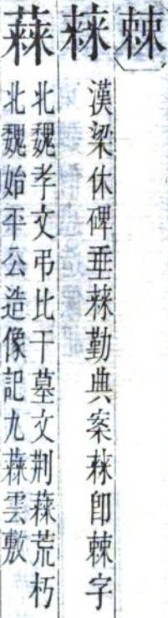 棘
漢梁休碑垂勤典案即棘字
蕀
北魏孝文弔比干墓文荆蕀荒朽
北魏始平公造像記九蕀雲敷